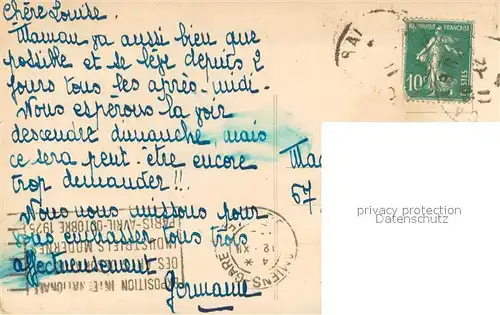 Chère Louise.
Maman va aussi bien que
possible et se lève depuis 2
jours tous les après-midi.
Nous espérons la voir
descendre dimanche, mais
ce sera peut-être encore
trop demander!!.
Nous nous unissons pour
vous embrasser tous trois
affectueusement
Germaine
67
RÉPUBLIQUE FRANÇAISE
10c
POSTES
privacy protection
Datenschutz
AMIENS GARE
4
12 XII
EXPOSITION INTERNATIONALE
DES
INDUSTRIELS MODERNES
PARIS-AVRIL-OCTOBRE 1925